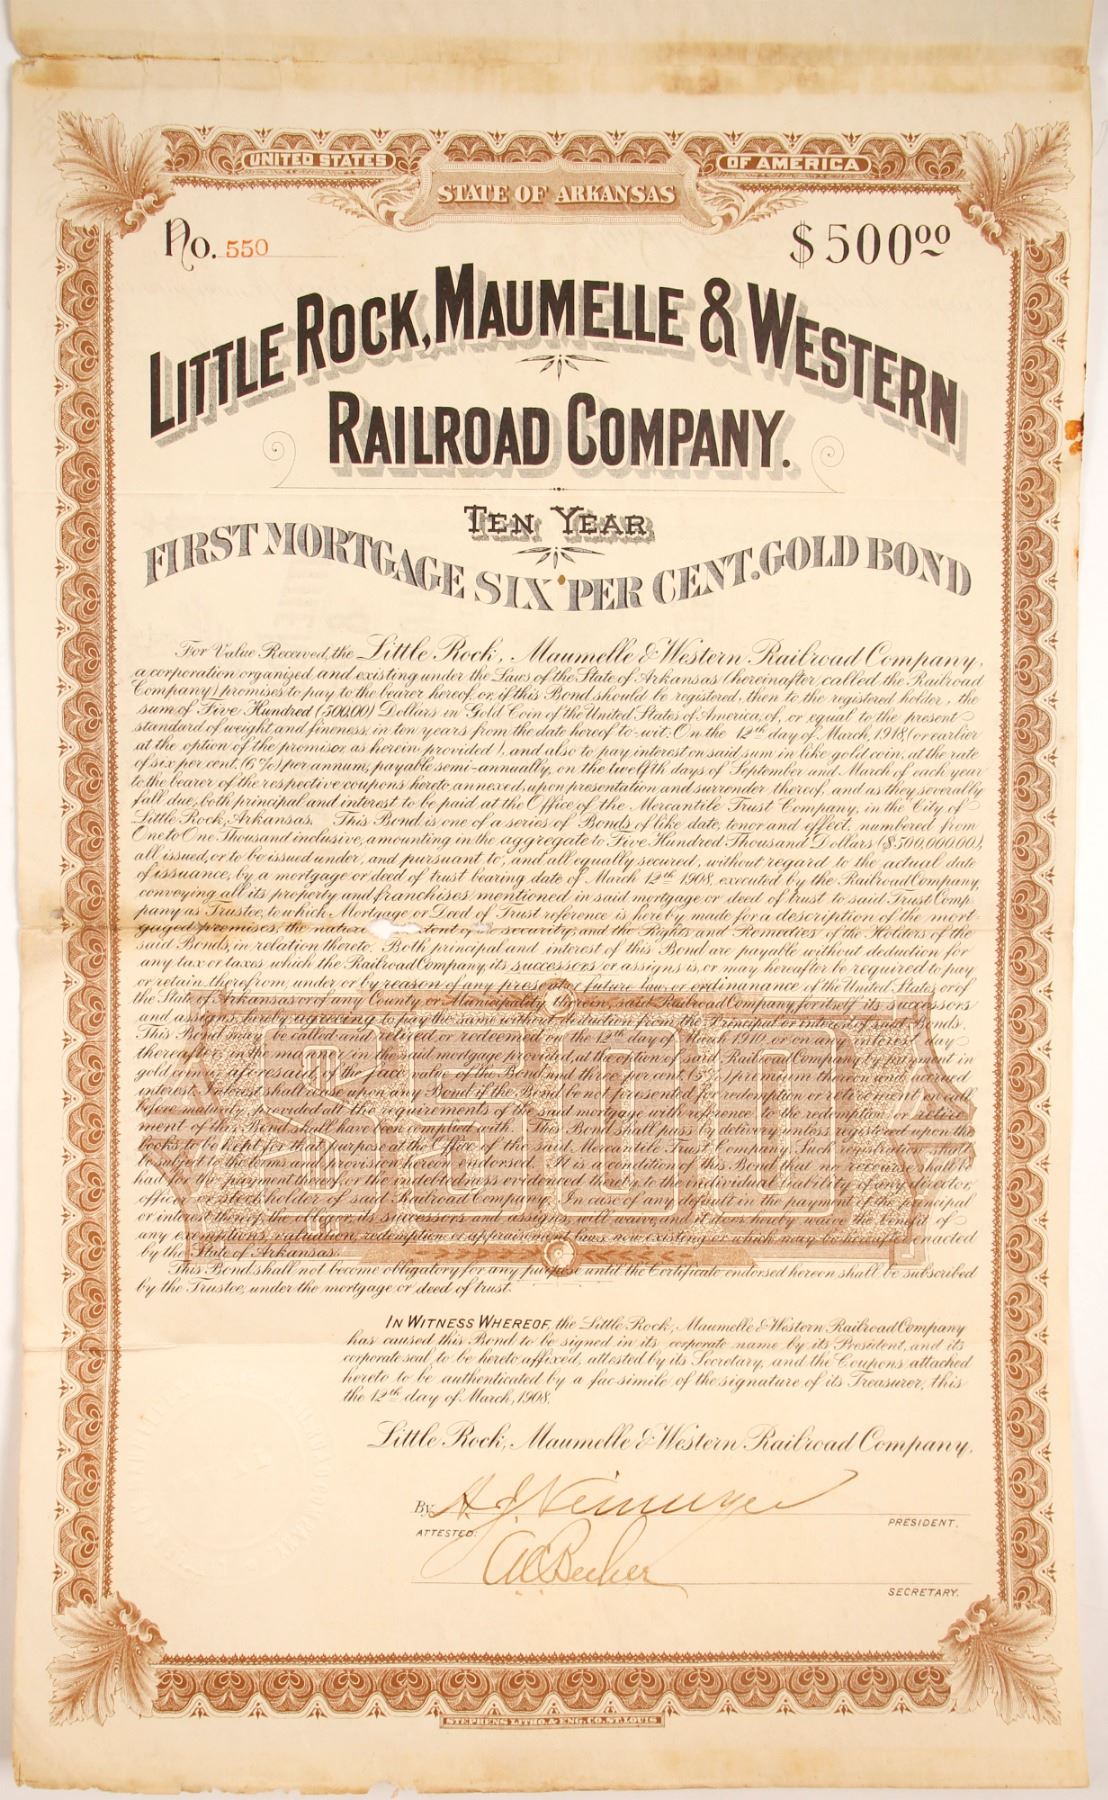 UNITED STATES
OF AMERICA
STATE OF ARKANSAS
No. 550
$500.00
LITTLE ROCK, MAUMELLE & WESTERN
RAILROAD COMPANY.
TEN YEAR
FIRST MORTGAGE SIX PER CENT. GOLD BOND
For Value Received, the Little Rock, Maumelle & Western Railroad Company,
a corporation organized and existing under the Laws of the State of Arkansas (hereinafter called the Railroad
Company) promises to pay to the bearer hereof, or, if this Bond should be registered, then to the registered holder, the
sum of Five Hundred (500.00) Dollars in Gold Coin of the United States of America, of, or equal to the present
standard of weight and fineness, in ten years from the date hereof to-wit: On the 12th day of March, 1918 (or earlier
at the option of the promisor, as herein provided), and also to pay interest on said sum in like gold coin, at the rate
of six per cent. (6%) per annum, payable semi-annually, on the twelfth days of September and March of each year
to the bearer of the respective coupons hereto annexed, upon presentation and surrender thereof, and as they severally
fall due, both principal and interest to be paid at the Office of the Mercantile Trust Company, in the City of
Little Rock, Arkansas. This Bond is one of a series of Bonds of like date, tenor and effect, numbered from
One to One Thousand inclusive, amounting in the aggregate to Five Hundred Thousand Dollars ($500,000.00),
all issued, or to be issued under, and pursuant to, and all equally secured, without regard to the actual date
of issuance, by a mortgage or deed of trust bearing date of March 12th 1908, executed by the Railroad Company,
conveying all its property and franchises mentioned in said mortgage or deed of trust to said Trust Comp-
pany as Trustee, to which Mortgage or Deed of Trust reference is hereby made for a description of the mort-
gaged premises, the nature tent of security, and the Rights and Remedies of the Holders of the
said Bonds, in relation thereto. Both principal and interest of this Bond are payable without deduction for
any tax or taxes which the Railroad Company, its successors or assigns is, or may hereafter be required to pay
or retain therefrom, under or by reason of any present or future law, or ordinanance of the United States, or of
the State of Arkansas or of any County or Municipality therein, said Railroad Company, for itself its successors
and assigns, hereby agreeing to pay the same without deduction from the Principal or interest of said Bonds.
This Bond may be called and retired or redeemed on the 12th day of March 1910, or on any interest day
thereafter, in the manner in the said mortgage provided, at the option of said Railroad Company, by payment in
gold coin as aforesaid, of the face value of the Bond, and three per cent. premium thereon and accrued
interest. Interest shall cease upon any Bond if the Bond be not presented for redemption or retirement on call
before maturity, provided all the requirements of the said mortgage with reference to the redemption, or retire-
ment of this Bond shall have been complied with. This Bond shall pass by delivery unless registered upon the
books to be kept for that purpose at the Office of the said Mercantile Trust Company. Such registration shall
be subject to the terms and provision hereon endorsed. It is a condition of this Bond that no recourse shall be
had for the payment thereof, or the indebtedness evidenced thereby, to the individual liability of any director,
officer or stockholder of said Railroad Company. In case of any default in the payment of the principal
or interest thereof, the obligor, its successors and assigns, will waive, and it does hereby waive the benefit of
any exemptions, valuation, redemption or appraisement laws now existing or which may be hereafter enacted
by the State of Arkansas.
This Bond shall not become obligatory for any purpose until the Certificate endorsed hereon shall be subscribed
by the Trustee, under the mortgage or deed of trust.
IN WITNESS WHEREOF, the Little Rock, Maumelle & Western Railroad Company
has caused this Bond to be signed in its corporate name by its President, and its
corporate seal, to be hereto affixed, attested by its Secretary, and the Coupons attached
hereto to be authenticated by a fac-simile of the signature of its Treasurer, this
the 12th day of March, 1908.
Little Rock, Maumelle & Western Railroad Company,
By A. J. Neimeyer
PRESIDENT.
ATTESTED:
A C Becker
SECRETARY.
$500
STEPHENS LITHO. & ENG. CO. ST. LOUIS